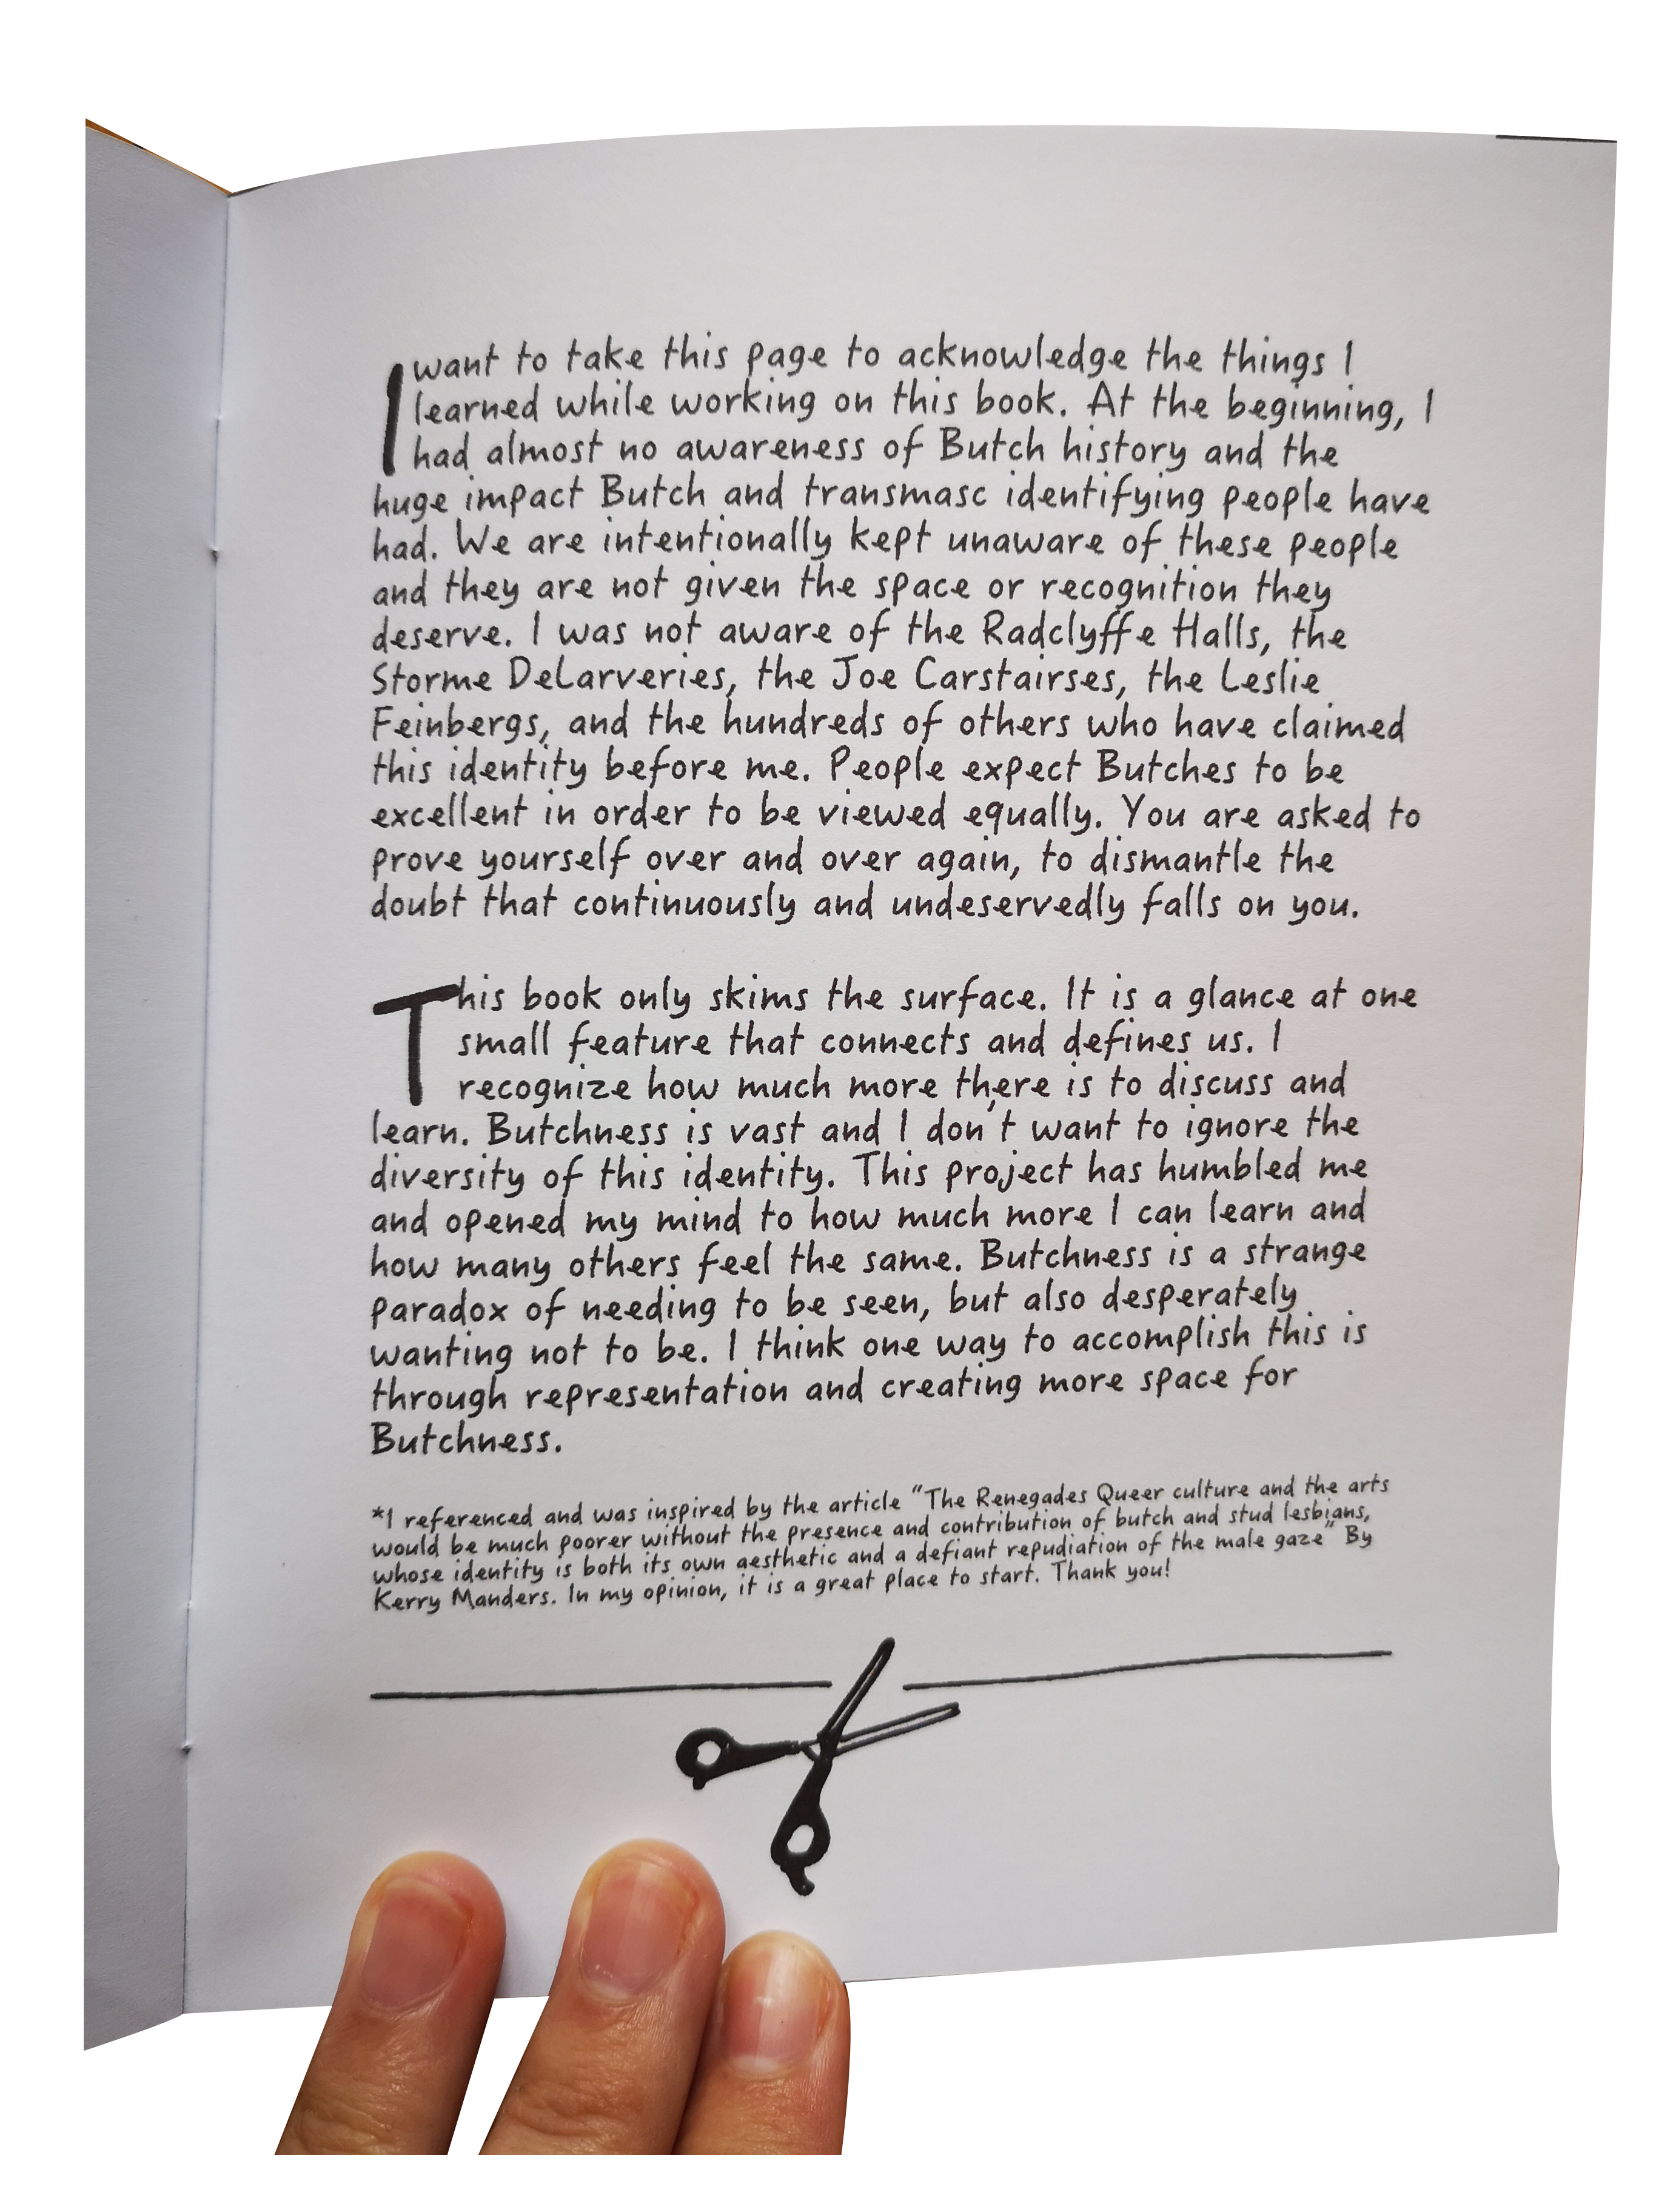 I want to take this page to acknowledge the things I
learned while working on this book. At the beginning, I
had almost no awareness of Butch history and the
huge impact Butch and transmasc identifying people have
had. We are intentionally kept unaware of these people
and they are not given the space or recognition they
deserve. I was not aware of the Radclyffe Halls, the
Storme DeLarveries, the Joe Carstairses, the Leslie
Feinbergs, and the hundreds of others who have claimed
this identity before me. People expect Butches to be
excellent in order to be viewed equally. You are asked to
prove yourself over and over again, to dismantle the
doubt that continuously and undeservedly falls on you.
This book only skims the surface. It is a glance at one
small feature that connects and defines us. I
recognize how much more there is to discuss and
learn. Butchness is vast and I don't want to ignore the
diversity of this identity. This project has humbled me
and opened my mind to how much more I can learn and
how many others feel the same. Butchness is a strange
paradox of needing to be seen, but also desperately
wanting not to be. I think one way to accomplish this is
through representation and creating more space for
Butchness.
*I referenced and was inspired by the article "The Renegades Queer culture and the arts
would be much poorer without the presence and contribution of butch and stud lesbians,
whose identity is both its own aesthetic and a defiant repudiation of the male gaze" By
Kerry Manders. In my opinion, it is a great place to start. Thank you!